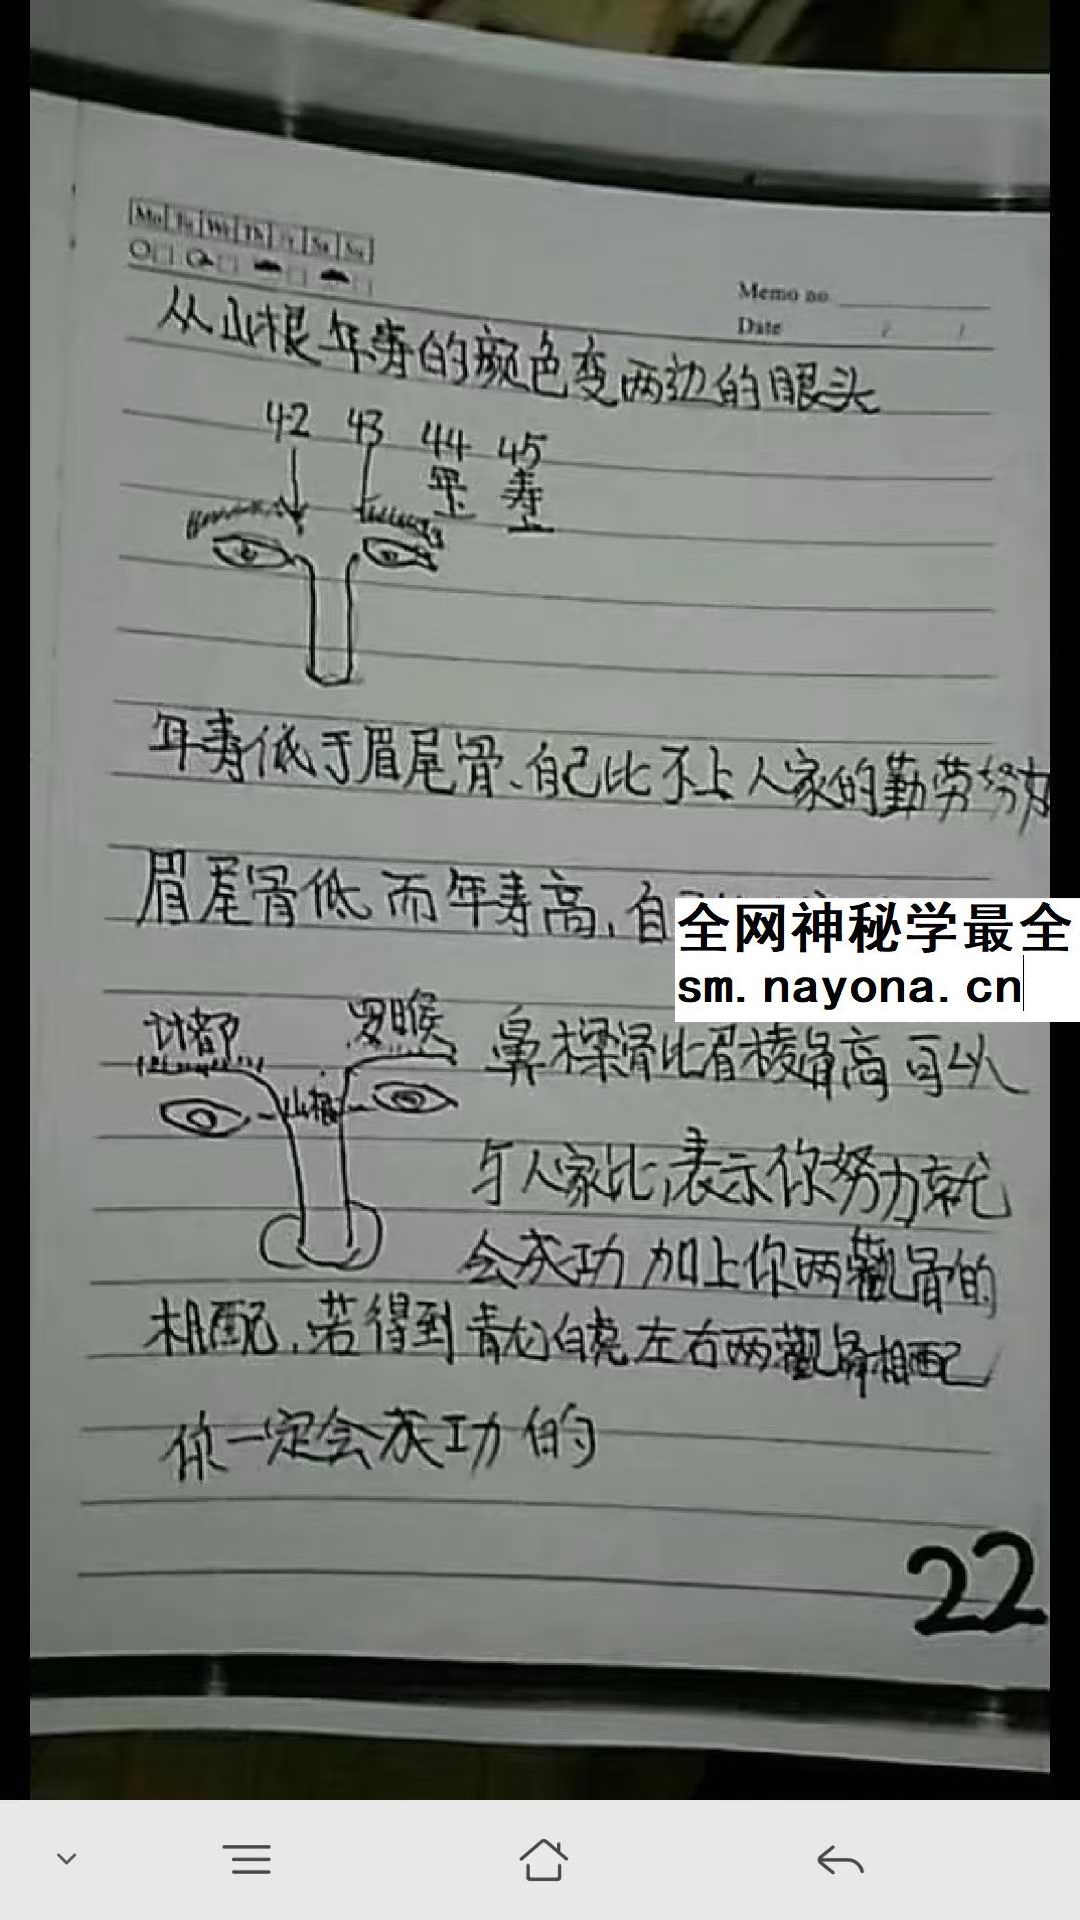 Mo Tu We Th Fr Sa Su
Memo no
Date / /
从山根年寿的颜色变两边的眼头
42 43 44 45
年上 寿上
年寿低于眉尾骨、自己比不上人家的勤劳努力
眉尾骨低而年寿高,自
全网神秘学最全
sm.nayona.cn
计都 罗睺
山根
鼻樑骨比眉棱骨高可以
与人家比,表示你努力就
会成功 加上你两颧骨的
相配,若得到青龙白虎左右两颧骨相配
你一定会成功的
22